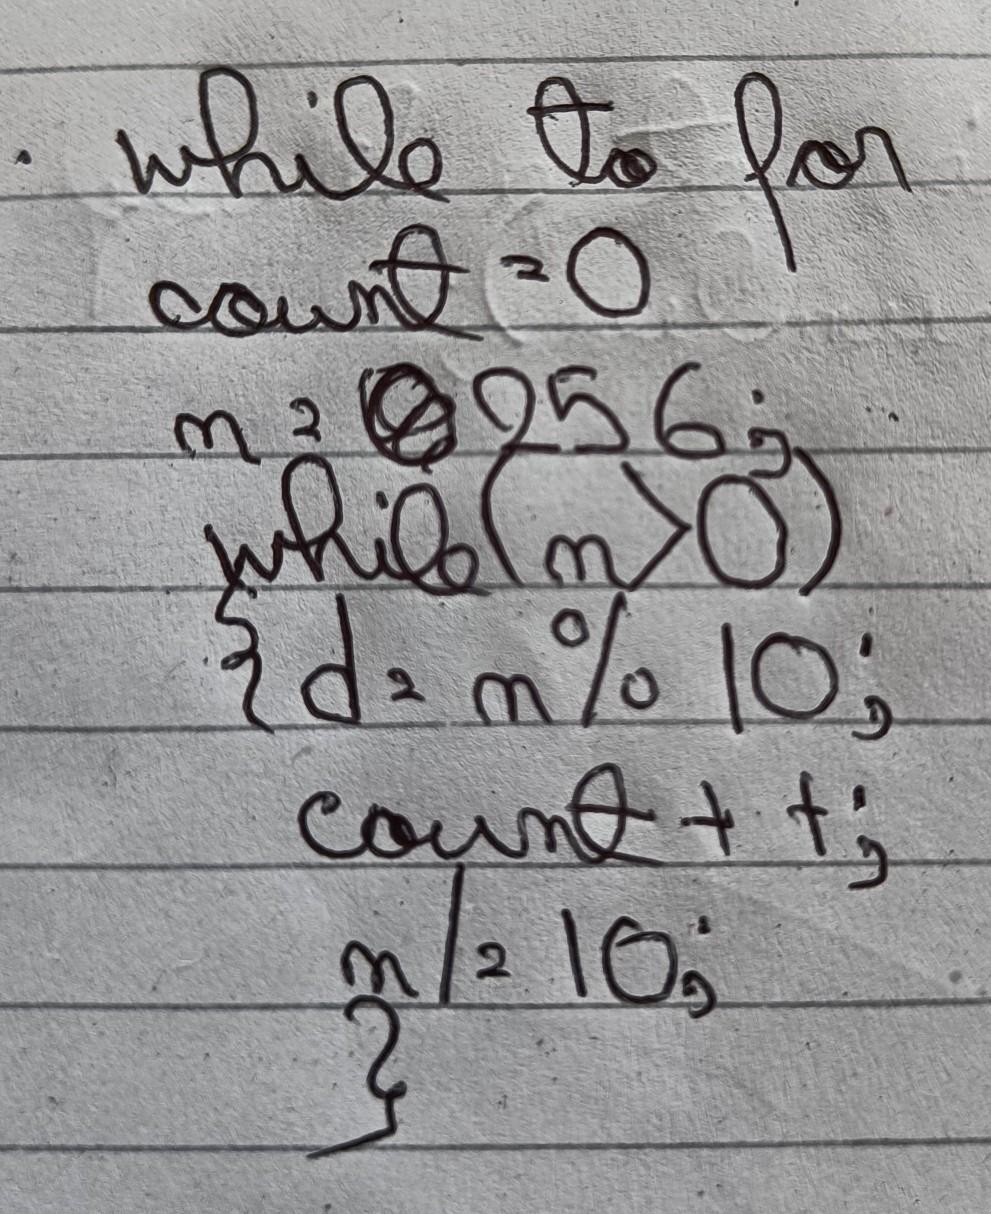 while to for
count = 0
n = 256;
while(n>0)
{ d = n % 10;
count + +;
n / = 10;
}